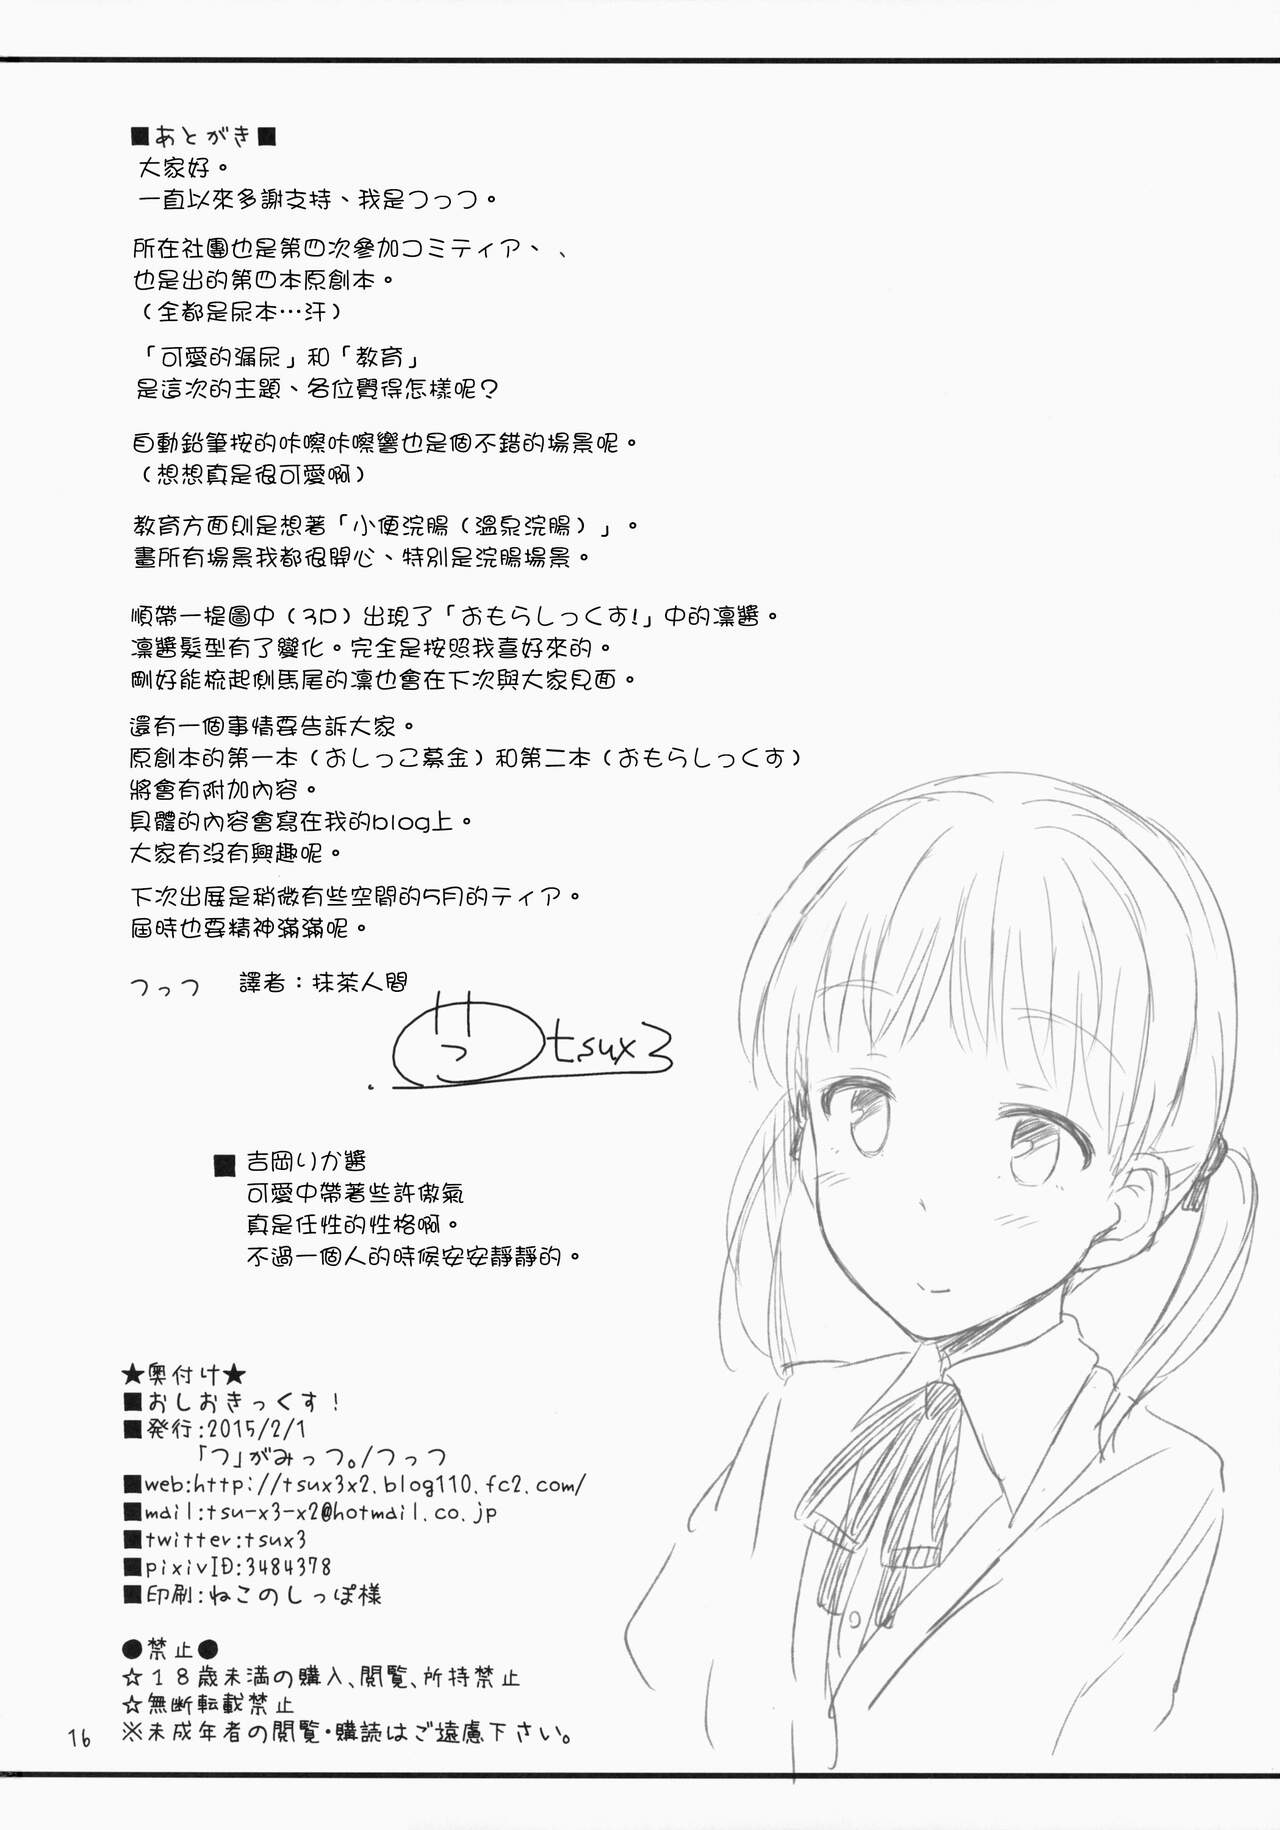 ■あとがき■
大家好。
一直以來多謝支持、我是つっつ。
所在社團也是第四次參加コミティア、、
也是出的第四本原創本。
（全都是尿本…汗）
「可愛的漏尿」和「教育」
是這次的主題、各位覺得怎樣呢？
自動鉛筆按的咔嚓咔嚓響也是個不錯的場景呢。
（想想真是很可愛啊）
教育方面則是想著「小便浣腸（溫泉浣腸）」。
畫所有場景我都很開心、特別是浣腸場景。
順帶一提圖中（3P）出現了「おもらしっくす!」中的凛醬。
凛醬髮型有了變化。完全是按照我喜好來的。
剛好能梳起側馬尾的凛也會在下次與大家見面。
還有一個事情要告訴大家。
原創本的第一本（おしっこ募金）和第二本（おもらしっくす）
將會有附加內容。
具體的內容會寫在我的blog上。
大家有沒有興趣呢。
下次出展是稍微有些空間的5月的ティア。
屆時也要精神滿滿呢。
つっつ 譯者：抹茶人間
っ tsux3
■吉岡りか醬
可愛中帶著些許傲氣
真是任性的性格啊。
不過一個人的時候安安靜靜的。
★奥付け★
■おしおきっくす！
■発行:2015/2/1
「つ」がみっつ。/つっつ
■web:http://tsux3x2.blog110.fc2.com/
■mail:tsu-x3-x2@hotmail.co.jp
■twitter:tsux3
■pixivID:3484378
■印刷:ねこのしっぽ様
●禁止●
☆１８歳未満の購入、閲覧、所持禁止
☆無断転載禁止
※未成年者の閲覧・購読はご遠慮下さい。
16